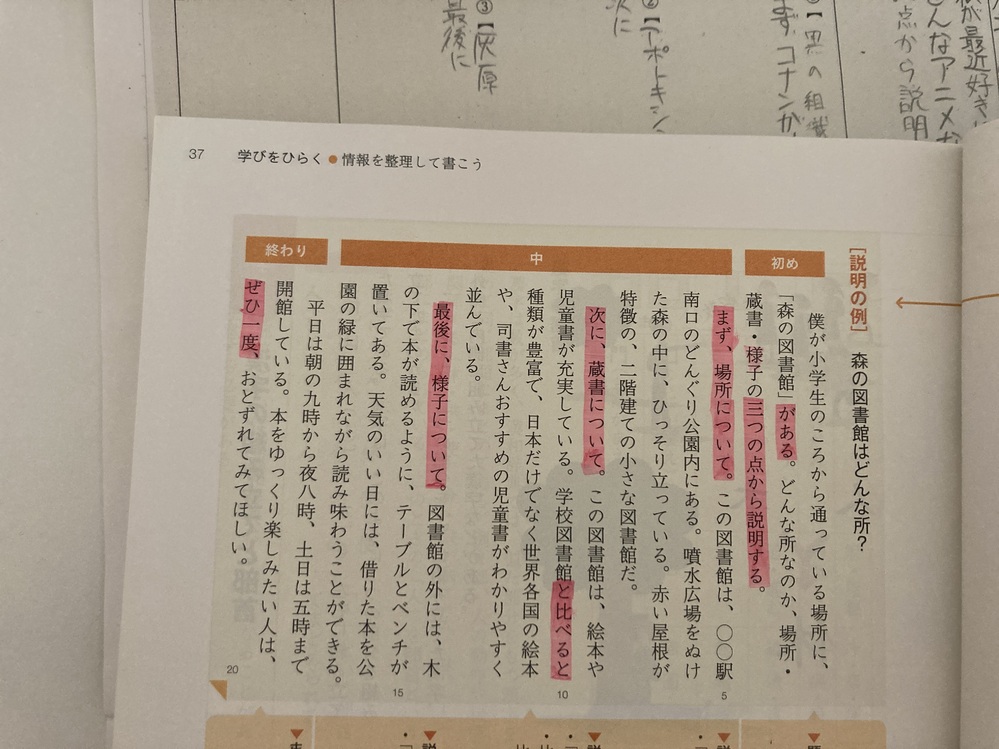 ①【黒の組織
まず、コナンが
②【アポトキシン
次に
③【灰原
最後に
37 学びをひらく●情報を整理して書こう
[説明の例] 森の図書館はどんな所？
初め
僕が小学生のころから通っている場所に、
「森の図書館」がある。どんな所なのか、場所・
蔵書・様子の三つの点から説明する。
中
まず、場所について。この図書館は、〇〇駅
南口のどんぐり公園内にある。噴水広場をぬけ
た森の中に、ひっそり立っている。赤い屋根が
特徴の、二階建ての小さな図書館だ。
次に、蔵書について。この図書館は、絵本や
児童書が充実している。学校図書館と比べると
種類が豊富で、日本だけでなく世界各国の絵本
や、司書さんおすすめの児童書がわかりやすく
並んでいる。
最後に、様子について。図書館の外には、木
の下で本が読めるように、テーブルとベンチが
置いてある。天気のいい日には、借りた本を公
園の緑に囲まれながら読み味わうことができる。
終わり
平日は朝の九時から夜八時、土日は五時まで
開館している。本をゆっくり楽しみたい人は、
ぜひ一度、おとずれてみてほしい。
5
10
15
20